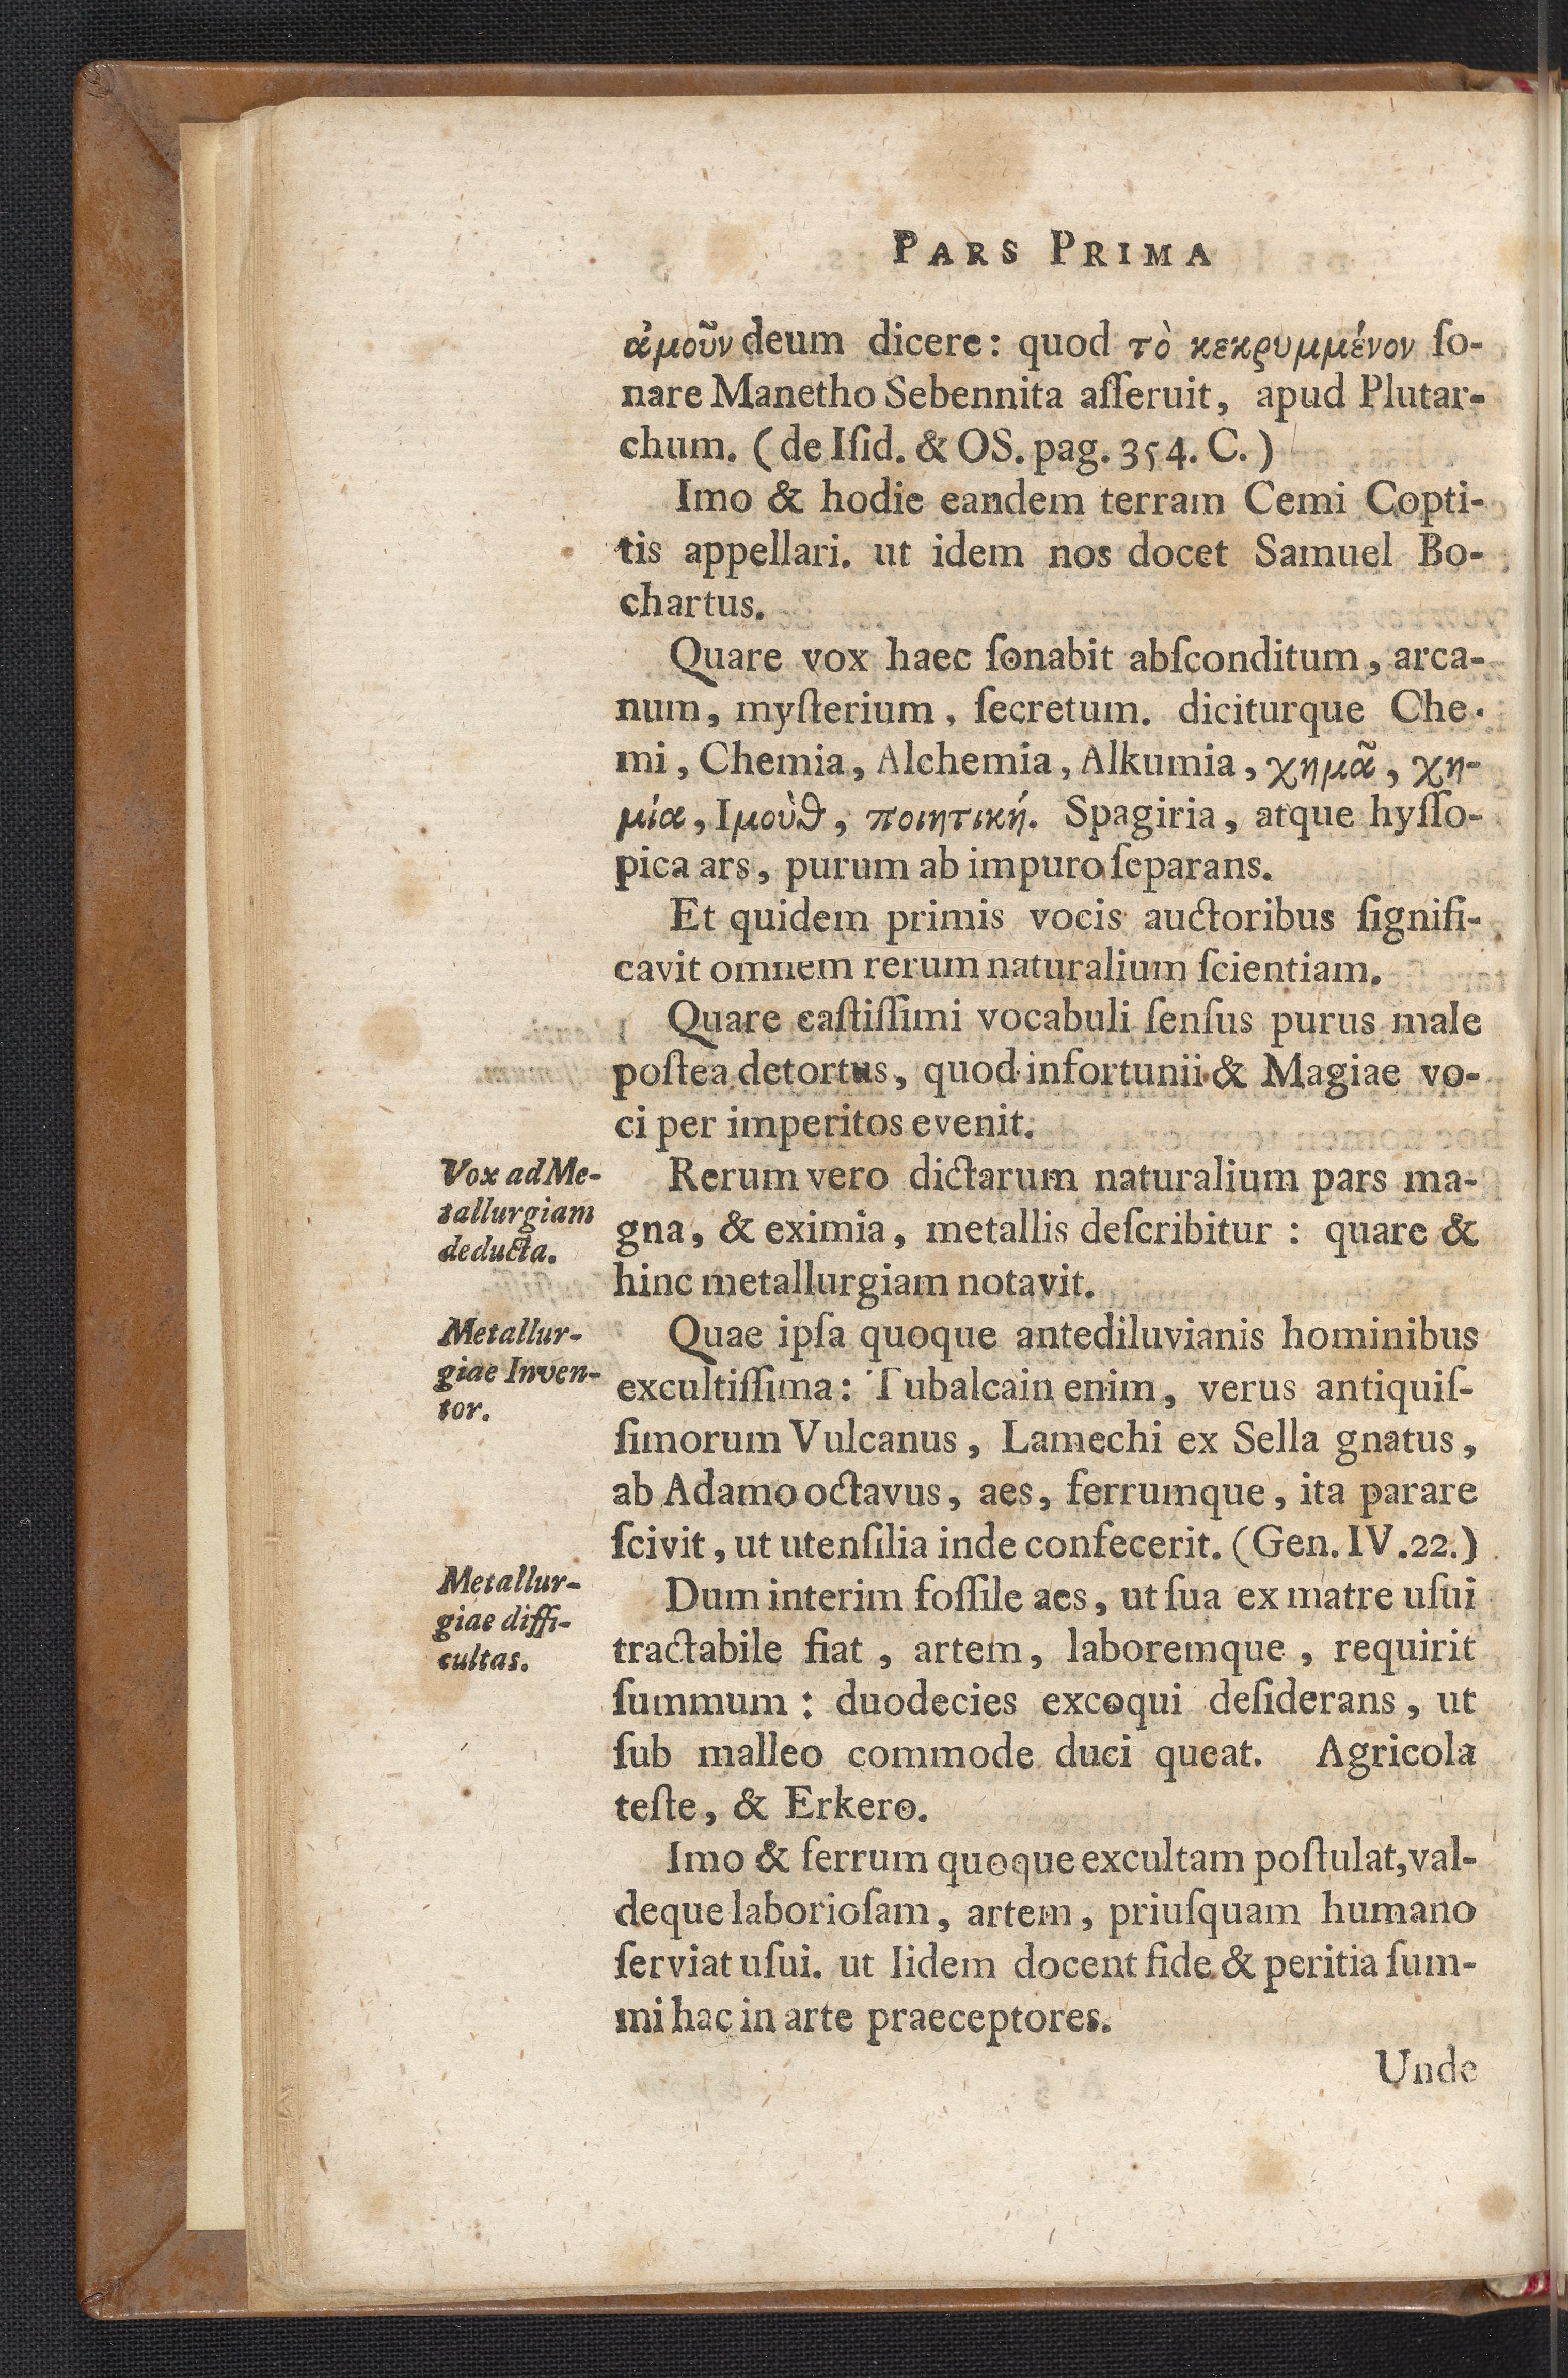 PARS PRIMA
ἀμοῦν deum dicere: quod τὸ κεκρυμμένον ſo-
nare Manetho Sebennita aſſeruit, apud Plutar-
chum. (de Iſid. & OS. pag. 354. C.)
Imo & hodie eandem terram Cemi Copti-
tis appellari. ut idem nos docet Samuel Bo-
chartus.
Quare vox haec ſonabit abſconditum, arca-
num, myſterium, ſecretum. diciturque Che-
mi, Chemia, Alchemia, Alkumia, χημᾶ, χη-
μία, Ιμοὺθ, ποιητική. Spagiria, atque hyſſo-
pica ars, purum ab impuro ſeparans.
Et quidem primis vocis auctoribus ſignifi-
cavit omnem rerum naturalium ſcientiam.
Quare caſtiſſimi vocabuli ſenſus purus male
poſtea detortus, quod infortunii & Magiae vo-
ci per imperitos evenit.
Vox ad Me-
tallurgiam
deducta.
Rerum vero dictarum naturalium pars ma-
gna, & eximia, metallis deſcribitur : quare &
hinc metallurgiam notavit.
Metallur-
giae Inven-
tor.
Quae ipſa quoque antediluvianis hominibus
excultiſſima: Tubalcain enim, verus antiquiſ-
ſimorum Vulcanus, Lamechi ex Sella gnatus,
ab Adamo octavus, aes, ferrumque, ita parare
ſcivit, ut utenſilia inde confecerit. (Gen. IV.22.)
Metallur-
giae diffi-
cultas.
Dum interim foſſile aes, ut ſua ex matre uſui
tractabile fiat, artem, laboremque, requirit
ſummum : duodecies excoqui deſiderans, ut
ſub malleo commode duci queat. Agricola
teſte, & Erkero.
Imo & ferrum quoque excultam poſtulat, val-
deque laborioſam, artem, priuſquam humano
ſerviat uſui. ut Iidem docent fide & peritia ſum-
mi hac in arte praeceptores.
Unde